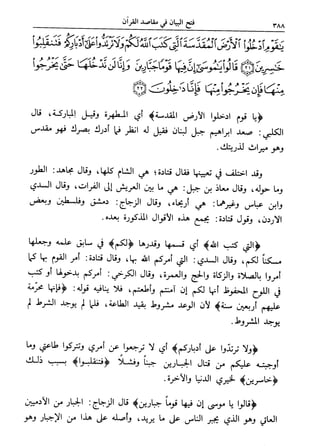 ٣٨٨
فتح البيان في مقاصد القرآن
يَٰقَوْمِ ٱدْخُلُوا۟ ٱلْأَرْضَ ٱلْمُقَدَّسَةَ ٱلَّتِى كَتَبَ ٱللَّهُ لَكُمْ وَلَا تَرْتَدُّوا۟ عَلَىٰٓ أَدْبَارِكُمْ فَتَنقَلِبُوا۟
خَٰسِرِينَ ﴿٢١﴾ قَالُوا۟ يَٰمُوسَىٰٓ إِنَّ فِيهَا قَوْمًا جَبَّارِينَ وَإِنَّا لَن نَّدْخُلَهَا حَتَّىٰ يَخْرُجُوا۟
مِنْهَا فَإِن يَخْرُجُوا۟ مِنْهَا فَإِنَّا دَٰخِلُونَ ﴿٢٢﴾
﴿يا قوم ادخلوا الأرض المقدسة﴾ أي المطهرة وقيل المباركة، قال
الكلبي: صعد ابراهيم جبل لبنان فقيل له انظر فما أدرك بصرك فهو مقدس
وهو ميراث لذريتك.
وقد اختلف في تعيينها فقال قتادة: هي الشام كلها، وقال مجاهد: الطور
وما حوله، وقال معاذ بن جبل: هي ما بين العريش إلى الفرات، وقال السدي
وابن عباس وغيرهما: هي أريحاء، وقال الزجاج: دمشق وفلسطين وبعض
الأردن، وقول قتادة: يجمع هذه الأقوال المذكورة بعده.
﴿التي كتب الله﴾ أي قسمها وقدرها ﴿لكم﴾ في سابق علمه وجعلها
مسكناً لكم، وقال السدي: التي أمركم الله بها، وقال قتادة: أمر القوم بها كما
أمروا بالصلاة والزكاة والحج والعمرة، وقال الكرخي: أمركم بدخولها أو كتب
في اللوح المحفوظ أنها لكم إن آمنتم وأطعتم، فلا ينافيه قوله: ﴿فإنها محرّمة
عليهم أربعين سنة﴾ لأن الوعد مشروط بقيد الطاعة، فلما لم يوجد الشرط لم
يوجد المشروط.
﴿ولا ترتدّوا على أدباركم﴾ أي لا ترجعوا عن أمري وتتركوا طاعتي وما
أوجبته عليكم من قتال الجبارين جبناً وفشلاً ﴿فتنقلبوا﴾ بسبب ذلك
﴿خاسرين﴾ لخيري الدنيا والآخرة.
﴿قالوا يا موسى إن فيها قوماً جبارين﴾ قال الزجاج: الجبار من الآدميين
العاتي وهو الذي يجبر الناس على ما يريد، وأصله على هذا من الإجبار وهو